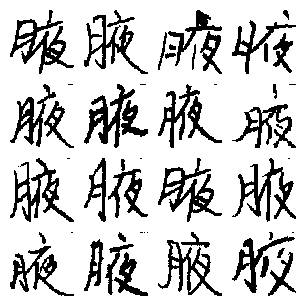 腋腋腋腋
腋腋腋腋
腋腋腋腋
腋腋腋腋